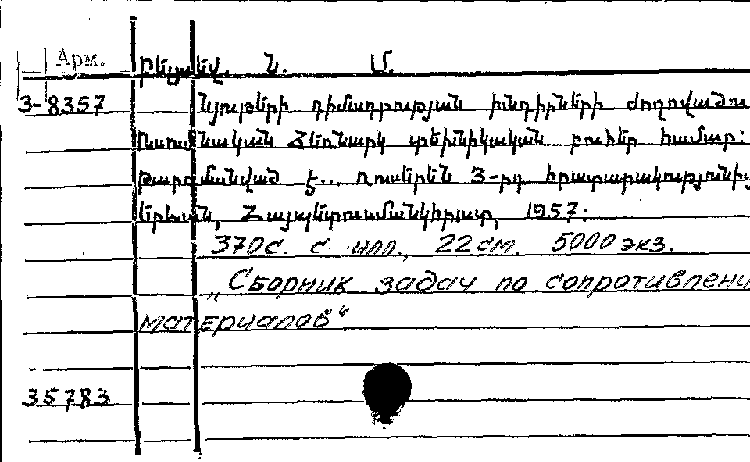 Арм.
Բելյաեվ. Ն. Մ.
3-8357
Նյութերի դիմադրության խնդիրների ժողովածու
Ուսումնական Հեռնարկ տեխնիկական բուհեր համար:
թարգմանված է... ռուսերեն 3-րդ հրատարակությունից
Երևան, Հայպետուսմանկհրատ, 1957:
370 с. с илл., 22 см. 5000 экз.
„Сборник задач по сопротивлени
материалов“
35783